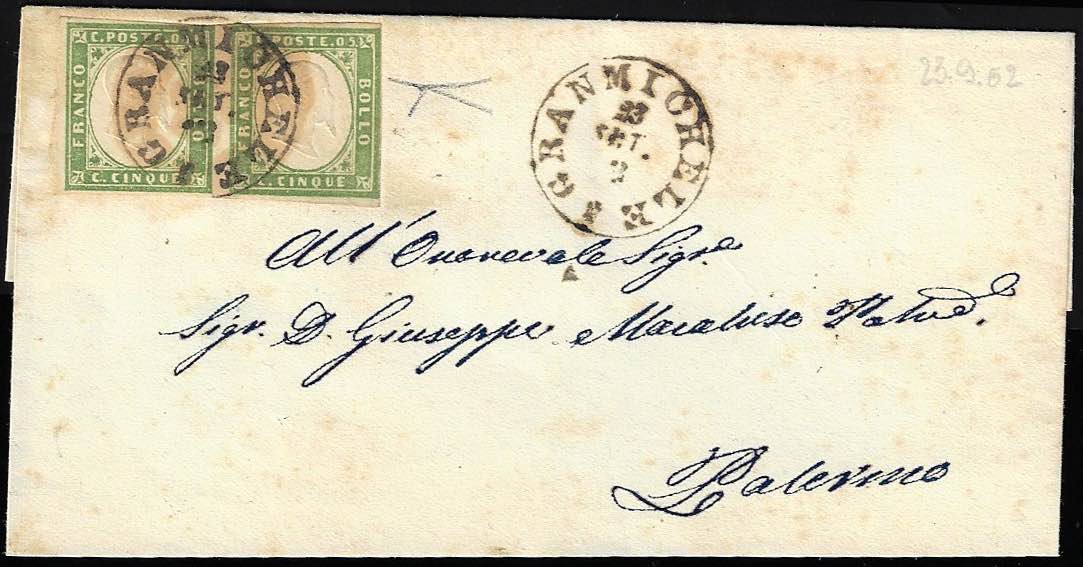 C. POSTE. 05
FRANCO
C. CINQUE
C. POSTE. 05
FRANCO
BOLLO
C. CINQUE
GRANMICHELE
SET.
GRANMICHELE
23
SET.
2
23.9.62
All' Onorevole Sigr.
Sigr. D. Giuseppe Macaluso
Palermo